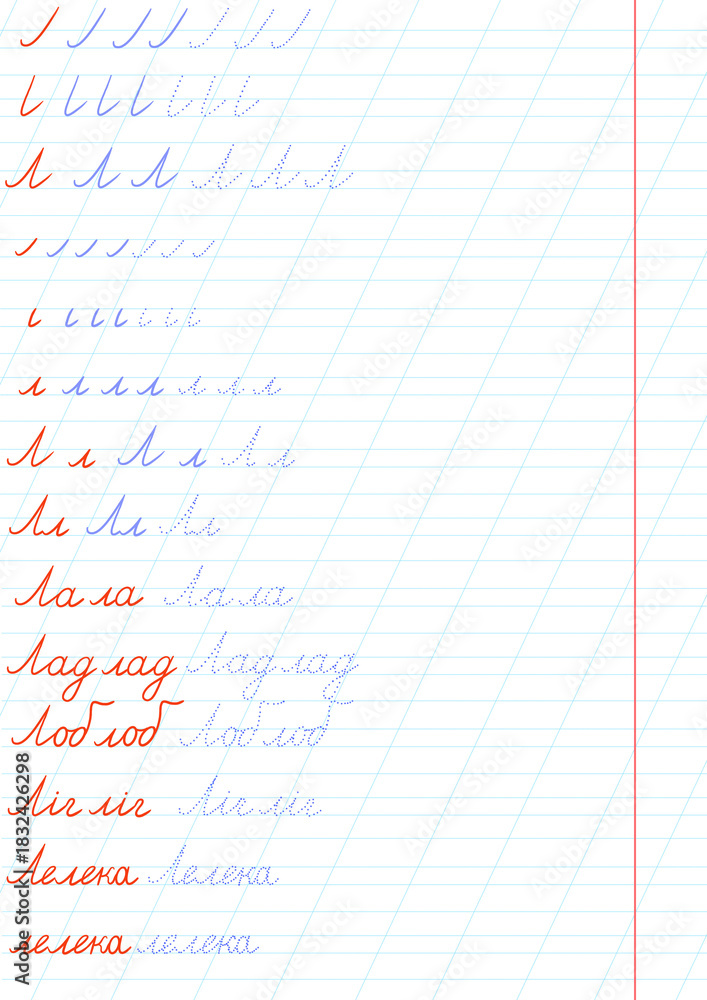 Л Л Л Л Л Л
л л л л л л л
Л л Л л Л л
Лл Лл Лл
Ла ла Ла ла
Лад лад Лад лад
Лоб лоб Лоб лоб
Ліг ліг Ліг ліг
Лелека Лелека
лелека лелека
Adobe Stock | #1832426298